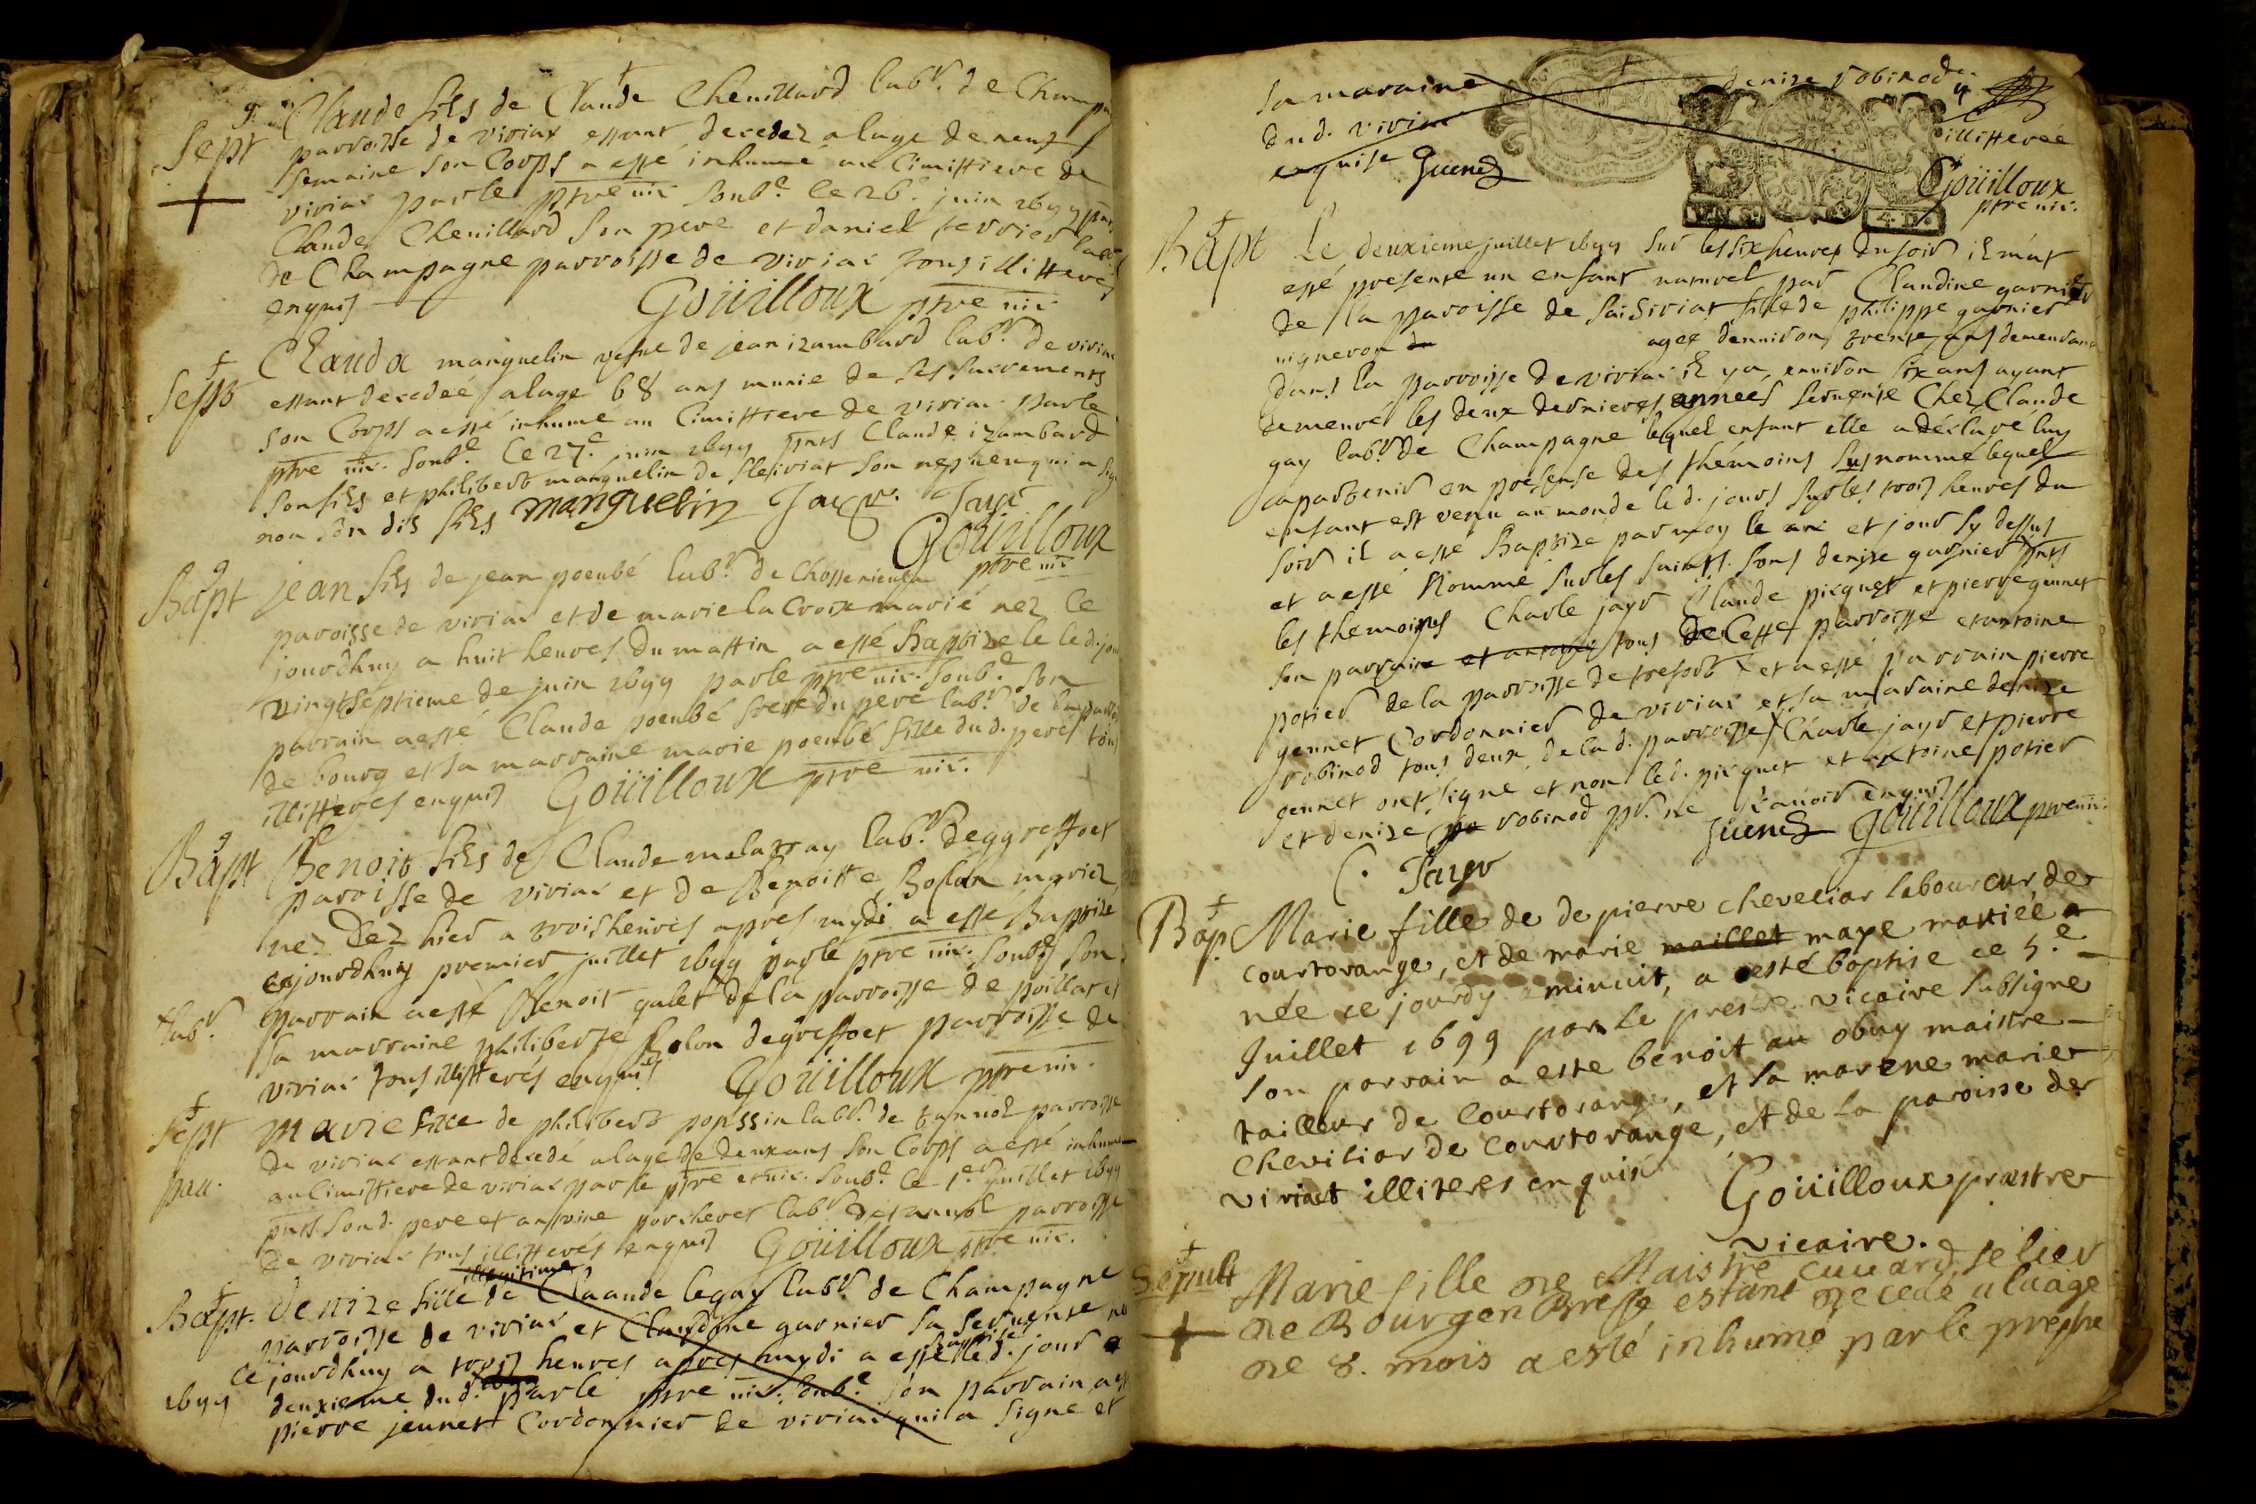 Sept Claude fils de Claude Chenillard labr. de Champ
parroisse de viriat estant decedez a lage de neuf
semaine son Corps a esté inhumé au Cimittiere de
viriat par le ptre vic. soubé. le 26e. juin 1699 pnts
Claude Chenillard son pere et daniel ferrier labr
de Champagne parroisse de viriat tous illitteres
enquis Goüilloux ptre vic
Clauda manguelin vefue de jean izambard labr. de viriat
Sept estant decedeé a lage 68 ans munie de ses sacrements
son Corps a esté inhumé au Cimittiere de viriat par le
ptre vic. soubé. le 27e. juin 1699 pnts Claude izambard
son fils et philibert manguelin de son nepueu qui a sig
non son dit fils manguelin
Goüilloux
ptre vic
Bapt jean fils de jean poenbé labr. de
paroisse de viriat et de marie la Croix marié nez ce
jourdhuy a huit heures du mattin a esté Baptize le led. jou
vingtseptieme de juin 1699 par le ptre vic. soubé. son
parrain a esté Claude poenbé frere du pere labr. de la parr
de bourg et sa marraine marie poenbé fille dud. pere tous
illitteres enquis Goüilloux ptre vic.
Bapt Benoit fils de Claude malatray labr. deggreffoet
paroisse de viriat et de Benoitte Bolon mariez
nez dez hier a trois heures apres mydi a esté Baptize
cejourdhuy premier juillet 1699 par le ptre vic. soubé. son
labr. parrain a esté Benoit galet de la parroisse de poillat et
sa marraine philiberte Bolon degreffoet parroisse de
viriat tous illitterés enquis Goüilloux ptre vic.
Sept marie fille de philibert popssin labr. de parroisse
de viriat estant decedé a lage de deux ans son Corps a esté inhumé
pau. au Cimittiere de viriat par le ptre et vic. soubé. le 1er. juillet 1699
pnts sond. pere et antoine porcheret labr. parroisse
de viriat tous illitterés enquis Goüilloux ptre vic.
illegitime
Bapt. denize fille de Claude legay labr. de Champagne
parroisse de viriat et Claudine garnier sa seruente
ce jourdhuy a trois heures apres mydi a esté led. jour
1699 deuxieme dud. par le ptre vic. soubé. son parrain a
pierre jennet Cordonnier de viriat qui a signe et
sa maraine denize robinod
dud. viriat illitterée
enquise Guenet
Goüilloux
ptre vic.
4. D.
Bapt Le deuxieme juillet 1699 sur les six heures du soir il m'at
esté presenté un enfant naturel par Claudine garnier
de la paroisse de fille de philippe garnier
vigneron agee denuiron trente ans demeurant
dans la parroisse de viriat il ya enuiron six ans ayant
demeuré les deux dernieres années seruente Chez Claude
gay labr. de Champagne lequel enfant elle a déclaré luy
apartenir en presense des thémoins susnommé lequel
enfant est venu au monde le d. jours sur les trois heures du
soir il a esté Baptize par moy le an et jour sy dessus
et a esté Nommé sur les saints fons denize garnier pnts
les themoins Charle jayr Claude picquet et pierre gennet
son parrain et antoine tous de Cette parroisse et antoine
potier de la parroisse de tresort et a esté parrain pierre
gennet Cordonnier de viriat et sa maraine denize
robinod tous deux de la d. parroisse Charle jayr et pierre
gennet ont signe et non led. picquet et antoine potier
et denize robinod pr. ne scauoir enquis
Guenet Goüilloux ptre vic.
C. Jayr
Bap. Marie fille de de pierre cheveliar laboureur de
courtorange, et de marie maillet maye mariée a
née ce jourdy a minuit, a esté baptise ce 5.e
Juillet 1699 par le prestre vicaire subsigne
son parrain a este benoit au obuy maistre
tailleur de Courtorange, et sa marene marie
Cheviliar de Courtorange, et de la paroisse de
viriact illiteres enquis Goüilloux præstre
vicaire.
Sepult Marie fille de Maistre Cuuard selier
de Bourgen Bresse estant decedé a luage
de 8. mois a esté inhumé par le preptre